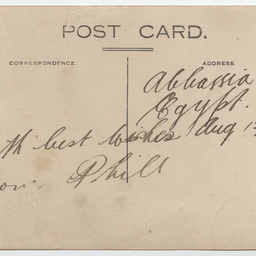 POST CARD.
CORRESPONDENCE.
ADDRESS.
Abbassia
Egypt.
th best wishes Aug 1
om Phill